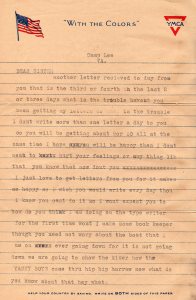 "WITH THE COLORS"
YMCA
Camp Lee
VA.
DEAR SISTER
Another letter recieved to day from
you that is the third or fourth in the last 2
or three days what is the trouble havent you
been getting my letters or what is the trouble
I dont write more than one letter a day to you
so you will be getting about one all at the
same time I hope you will be happy then I dont
want to hurt your feelings or any thing like
that you know that now dont
I just love to get letters from you for it makes
me happy so I wish you would write every day then
I know you sent to it as I want expect you to
how do you think I am doing on the type writer
for the first time wont I make some book keeper
though you need not worry about the boat that I
am on ever going down for it is not going
down we are going to show the kider how the
YACHT BOYS come thru hip hip hurrow now what do
you know about that hay what.
HELP YOUR COUNTRY BY SAVING. WRITE ON BOTH SIDES OF THIS PAPER